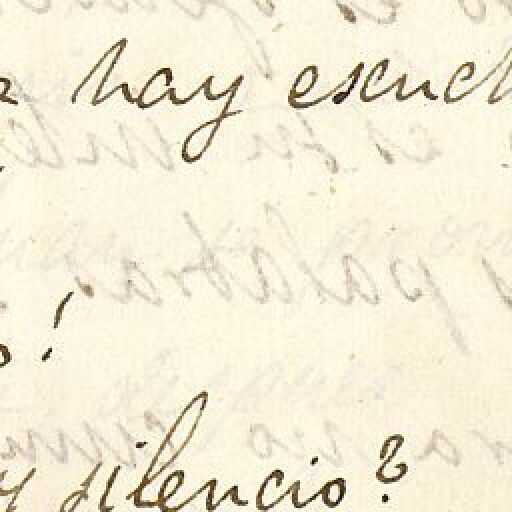 hay escuch
o!
y silencio?